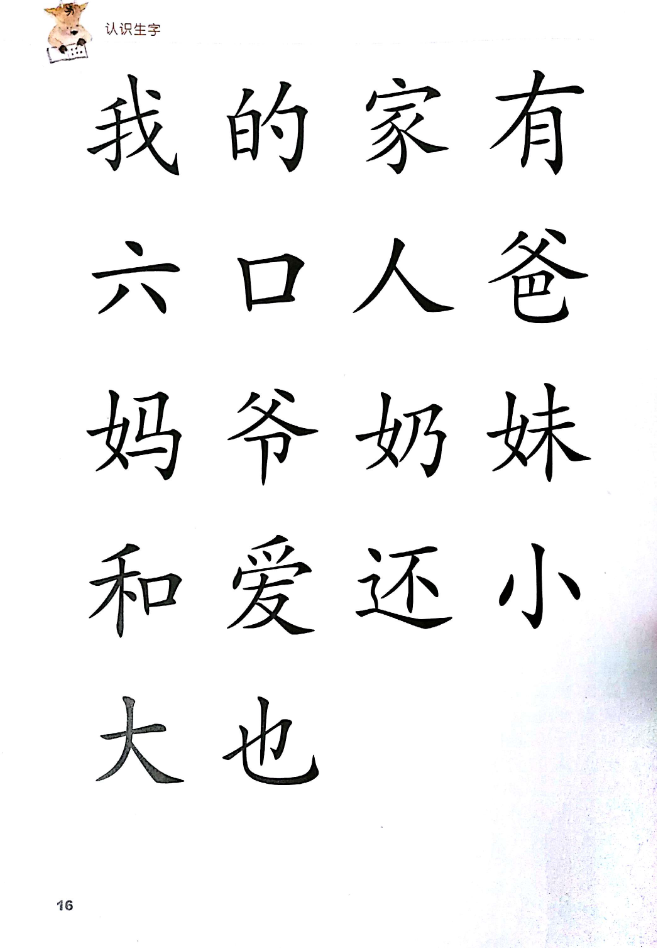 认识生字
我 的 家 有
六 口 人 爸
妈 爷 奶 妹
和 爱 还 小
大 也
16